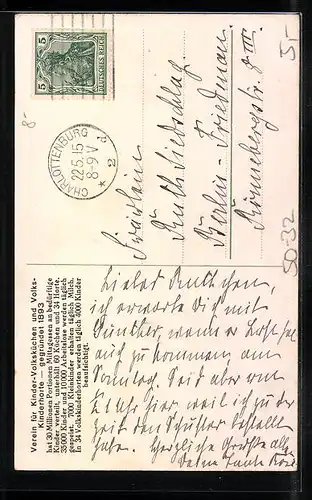 5 DEUTSCHES REICH 5
CHARLOTTENBURG
22.5.15
8-9V
* 2 d
8-
5-
SO-32
Fräulein
Ruth Siedschlag
Berlin - Friedenau
Rönnebergstr. 8 III.
Verein für Kinder-Volksküchen und Volks-
Kinderhorte — gegründet 1893
hat 30 Millionen Portionen Mittagessen an bedürftige
Kinder verteilt, unterhält 60 Küchen und 34 Horte.
35 000 Kinder und 10 000 Arbeitslose werden täglich
gespeist. 7 000 Kleinkinder erhalten täglich Milch.
In 34 Volkskinderhorten werden täglich 4000 Kinder
beaufsichtigt.
Liebes Ruthchen,
ich erwarte Dich mit
Günther, wenn er Lust hat
auch zu kommen, am
Sonntag. Seid aber um
Uhr hier, weil ich zu der
Zeit den bestellt
habe. Herzliche Grüße alle
Deine Tante Rosa